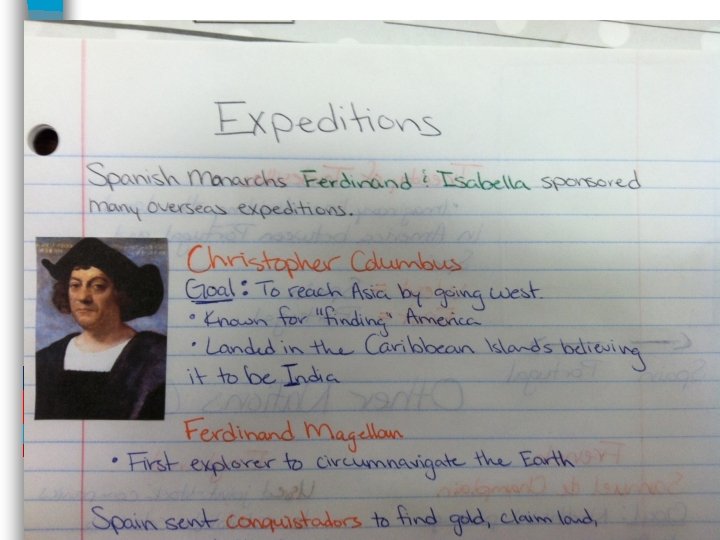 Expeditions
Spanish Monarchs Ferdinand & Isabella sponsored
many overseas expeditions.
Christopher Columbus
Goal: To reach Asia by going west.
• Known for "finding" America
• Landed in the Caribbean Islands believing
it to be India
Ferdinand Magellan
• First explorer to circumnavigate the Earth
Spain sent conquistadors to find gold, claim land,